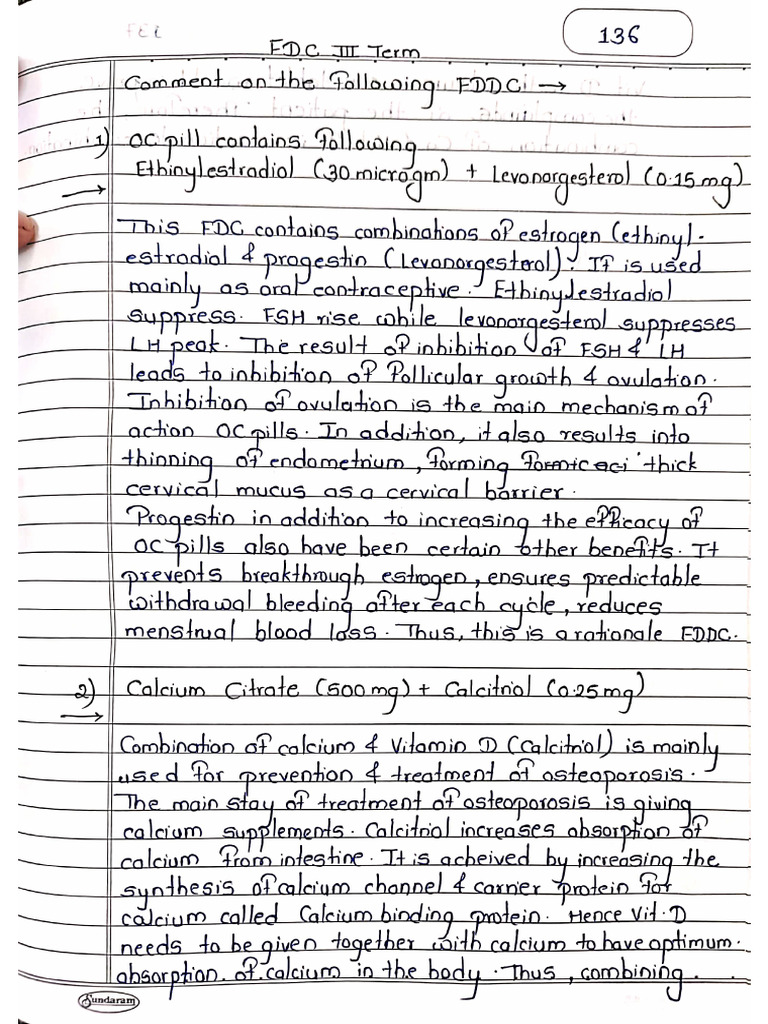 136
FDC III Term
Comment on the following FDDC →
1) OC pill contains following
Ethinylestradiol (30 microgm) + Levonorgesterol (0.15 mg)
→
This FDC contains combinations of estrogen (ethinyl-
estradiol & progestin (Levonorgesterol). It is used
mainly as oral contraceptive. Ethinylestradiol
suppress. FSH rise while levonorgesterol suppresses
LH peak. The result of inhibition of FSH & LH
leads to inhibition of follicular growth & ovulation.
Inhibition of ovulation is the main mechanism of
action OC pills. In addition, it also results into
thinning of endometrium, forming thick
cervical mucus as a cervical barrier.
Progestin in addition to increasing the efficacy of
OC pills also have been certain other benefits. It
prevents breakthrough estrogen, ensures predictable
withdrawal bleeding after each cycle, reduces
menstrual blood loss. Thus, this is a rationale FDDC.
2) Calcium Citrate (500mg) + Calcitriol (0.25mg)
→
Combination of calcium & Vitamin D (Calcitriol) is mainly
used for prevention & treatment of osteoporosis.
The main stay of treatment of osteoporosis is giving
calcium supplements. Calcitriol increases absorption of
calcium from intestine. It is acheived by increasing the
synthesis of calcium channel & carrier protein for
calcium called Calcium binding protein. Hence Vit. D
needs to be given together with calcium to have optimum.
absorption of calcium in the body. Thus, combining
Sundaram